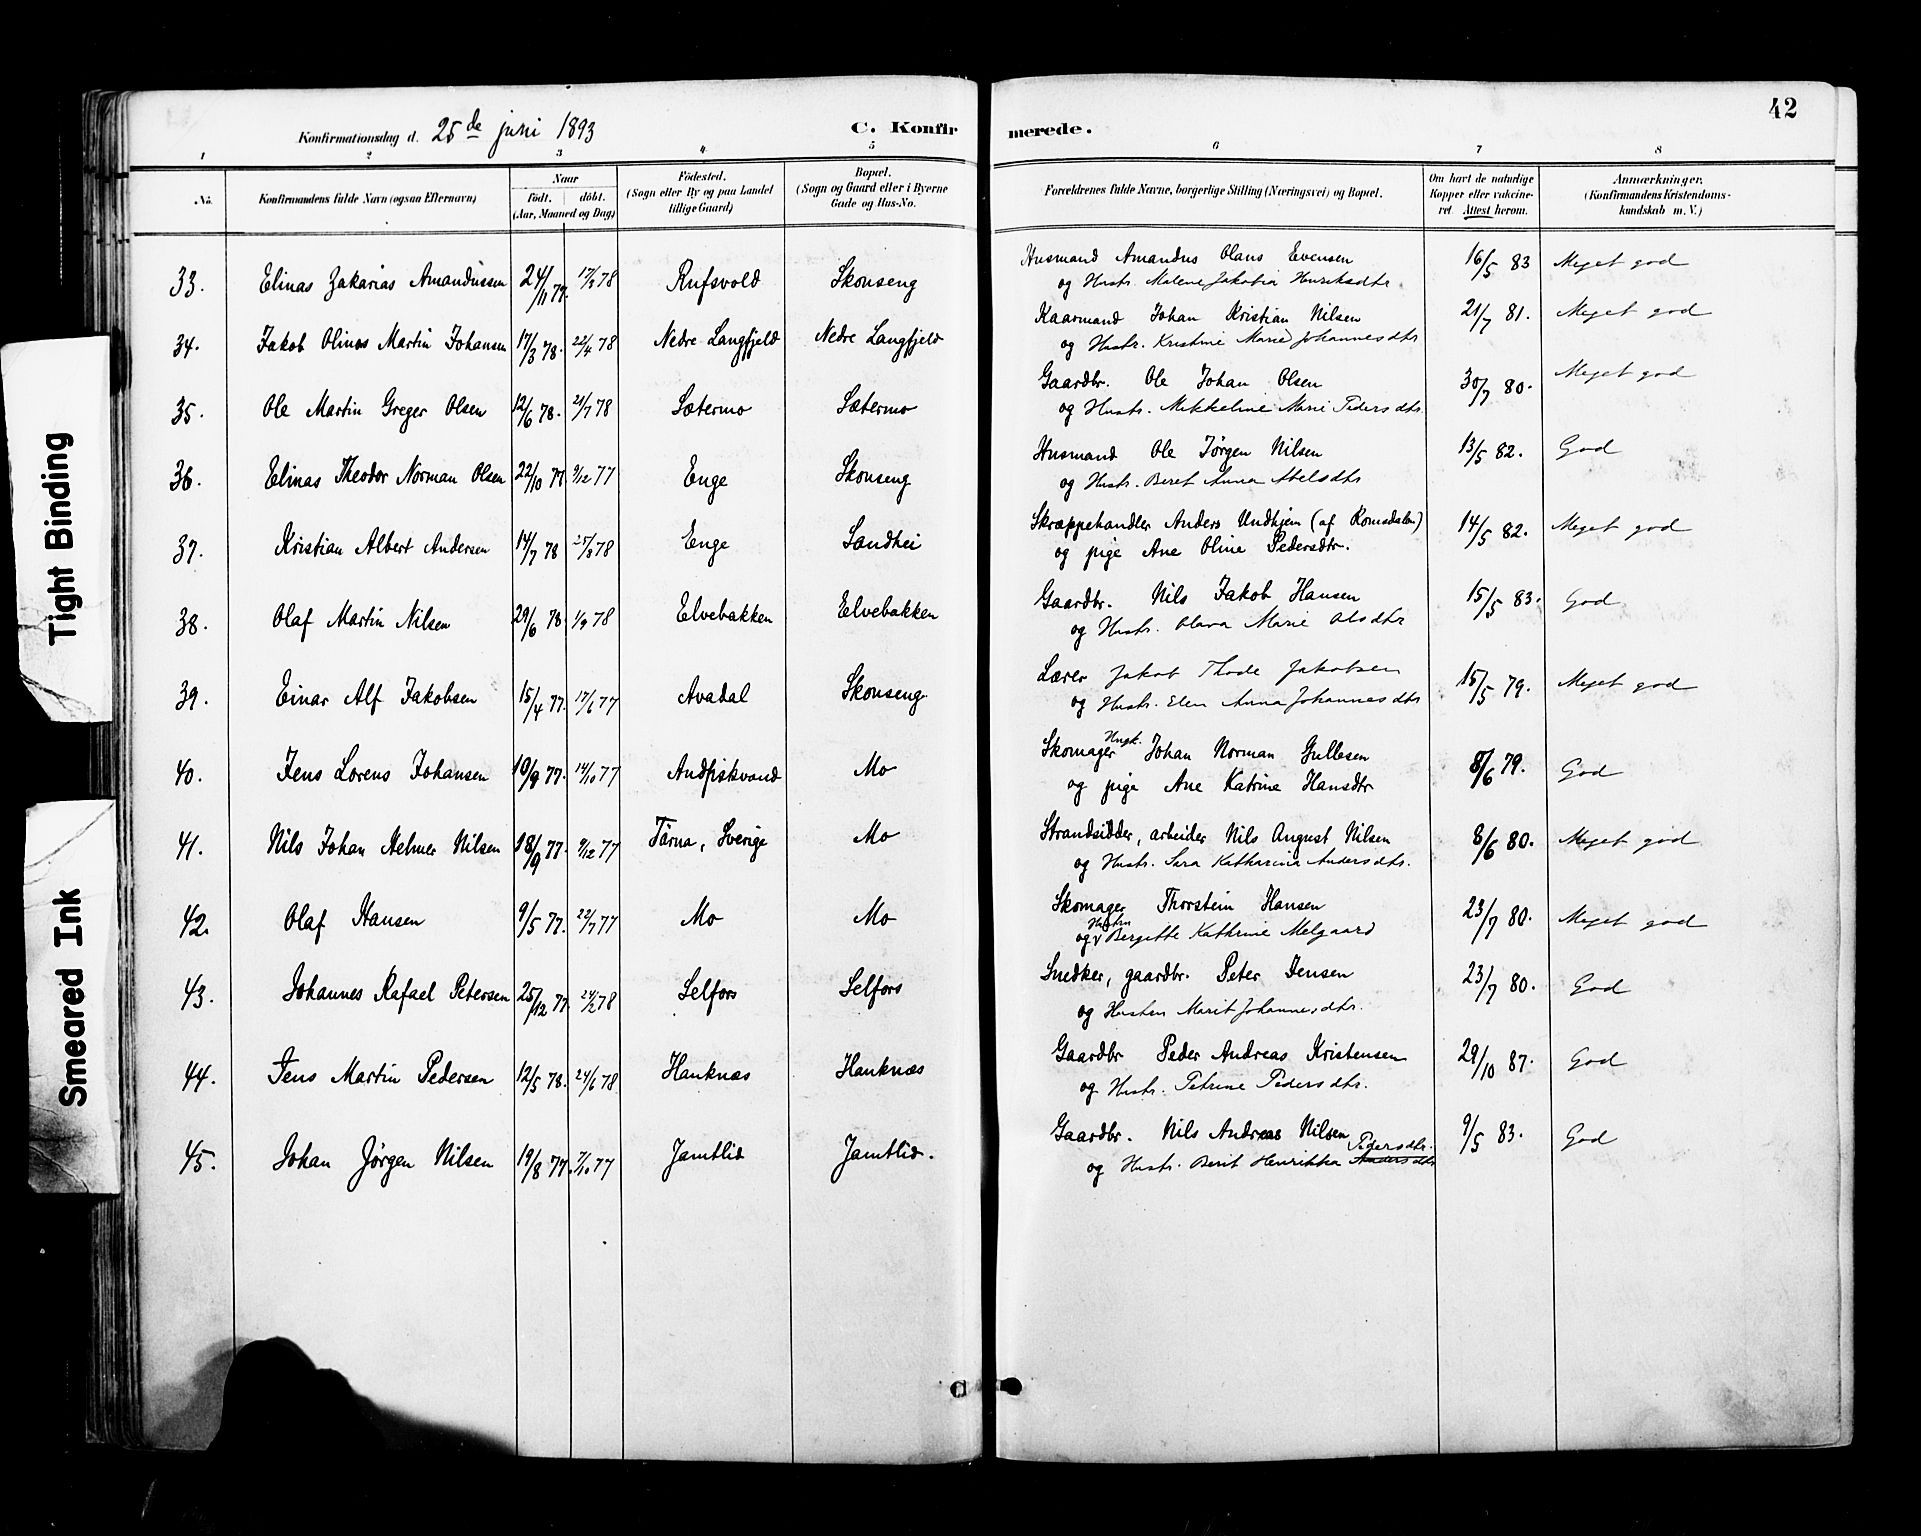 42
Konfirmationsdag d. 25de juni 1893
C. Konfirmerede.
1 2 3 4 5 6 7 8
No. Konfirmandens fulde Navn (ogsaa Efternavn) Naar Født. døbt. (Aar, Maaned og Dag) Fødested. (Sogn eller By og paa Landet tillige Gaard) Bopæl. (Sogn og Gaard eller i Byerne Gade og Hus-No. Forældrenes fulde Navne, borgerlige Stilling (Næringsvei) og Bopæl. Om havt de naturlige Kopper eller vaccineret. Attest herom. Anmærkninger. (Konfirmandens Kristendomskundskab m. V.)
33. Elinas Zakarias Amandussen 24/11 77. 17/3 78 Rufsvold Skonseng Husmand Amandus Olaus Evensen 16/5 83 Meget god
og Hustr. Malene Jakobia Henriksdtr.
34. Jakob Olinas Martin Johansen 17/3 78. 22/4 78 Nedre Langfjeld Nedre Langfjeld Kaarmand Johan Kristian Nilsen 21/7 81. Meget god
og Hustr. Kristine Marie Johannesdtr
35. Ole Martin Greger Olsen 12/6 78. 21/7 78 Sætermo Sætermo Gaardbr. Ole Johan Olsen 30/7 80. Meget god
og Hustr. Mekkeline Marie Pedersdtr.
36. Elinas Theodor Norman Olsen 22/10 77 9/12 77 Enge Skonseng Husmand Ole Jørgen Nilsen 13/5 82. God
og Hustr. Beret Anna Abelsdtr
37. Kristian Albert Andersen 14/7 78 25/8 78 Enge Sandhei Skræppehandler Anders Undhjem (af Romsdalen) 14/5 82. Meget god
og pige Ane Oline Pedersdtr.
38. Olaf Martin Nilsen 29/6 78. 1/9 78 Elvebakken Elvebakken Gaardbr. Nils Jakob Hansen 15/5 83. God
og Hustr. Olava Marie Olsdtr
39. Einar Alf Jakobsen 15/4 77. 17/6 77 Avadal Skonseng Lærer Jakob Thode Jakobsen 15/5 79. Meget god
og Hustr. Elen Anna Johannesdtr
40. Jens Lorens Johansen 10/9 77. 14/10 77 Andfiskvand Mo Skomager Ungk. Johan Norman Gullesen 8/6 79. God
og pige Ane Katrine Hansdtr
41. Nils Johan Helmer Nilsen 18/9 77. 9/12 77 Tärna, Sverige Mo Strandsidder, arbeider Nils August Nilsen 8/6 80. Meget god
og Hustr. Sara Katharina Andersdtr.
42. Olaf Hansen 9/5 77. 22/7 77 Mo Mo Skomager Thorstein Hansen 23/7 80. Meget god
og Hustru Bergitte Kathrine Melgaard
43. Johannes Rafael Petersen 25/12 77. 24/2 78 Selfors Selfors Snedker, gaardbr. Peter Jensen 23/7 80. God
og Hustru Marit Johannesdtr.
44. Jens Martin Pedersen 12/5 78. 24/6 78 Hauknæs Hauknæs Gaardbr Peder Andreas Kristensen 29/10 87. God
og Hustr. Petrine Pedersdtr.
45. Johan Jørgen Nilsen 19/8 77. 7/10 77 Jamtlid Jamtlid. Gaardbr. Nils Andreas Nilsen 9/5 83. God
og Hustr. Berit Henrikka Andersdtr Pedersdtr.
Tight Binding
Smeared Ink